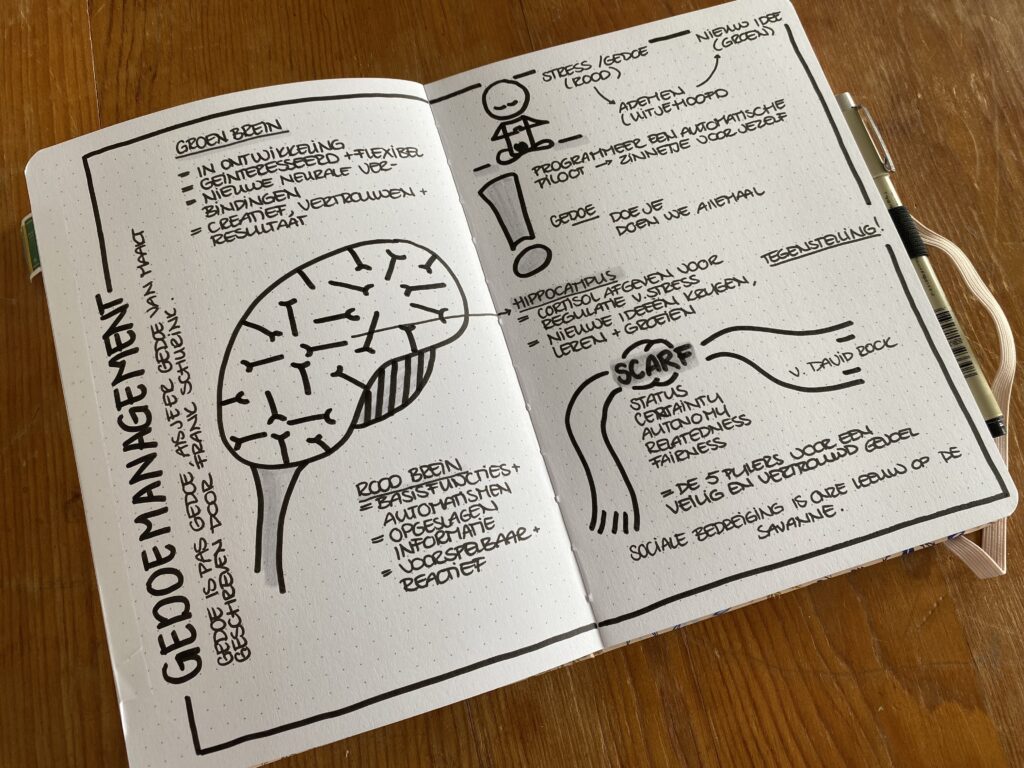 GEDOE MANAGEMENT
GEDOE IS PAS GEDOE, ALS JE ER GEDOE VAN MAAKT
GESCHREVEN DOOR FRANK SCHURINK.
GROEN BREIN
= IN ONTWIKKELING
= GEÏNTERESSEERD + FLEXIBEL
= NIEUWE NEURALE VER-
BINDINGEN
= CREATIEF, VERTROUWEN +
RESULTAAT
ROOD BREIN
= BASISFUNCTIES +
AUTOMATISMEN
= OPGESLAGEN
INFORMATIE
= VOORSPELBAAR +
REACTIEF
STRESS / GEDOE
(ROOD)
NIEUW IDEE
(GROEN)
ADEMEN
(UIT JE HOOFD
PROGRAMMEER EEN AUTOMATISCHE
PILOOT → ZINNETJE VOOR JEZELF
GEDOE DOE JE
DOEN WE ALLEMAAL
TEGENSTELLING!
HIPPOCAMPUS
= CORTISOL AFGEVEN VOOR
REGULATIE V. STRESS
= NIEUWE IDEEËN KRIJGEN,
LEREN + GROEIEN
SCARF
V. DAVID ROCK
STATUS
CERTAINTY
AUTONOMY
RELATEDNESS
FAIRNESS
= DE 5 PIJLERS VOOR EEN
VEILIG EN VERTROUWD GEVOEL
SOCIALE BEDREIGING IS ONZE LEEUW OP DE
SAVANNE.